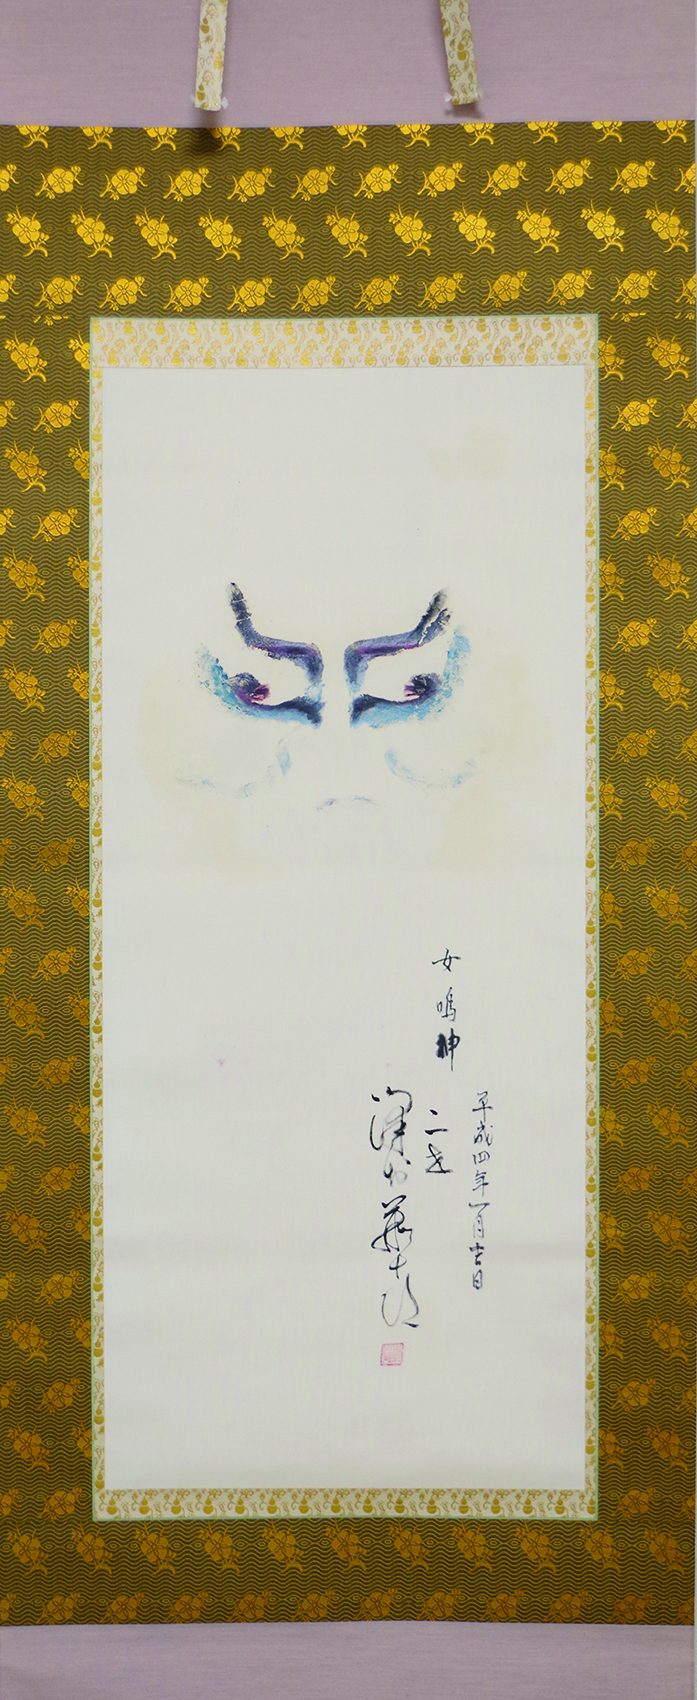 女鳴神
平成四年一月吉日
二世
澤村藤十郎